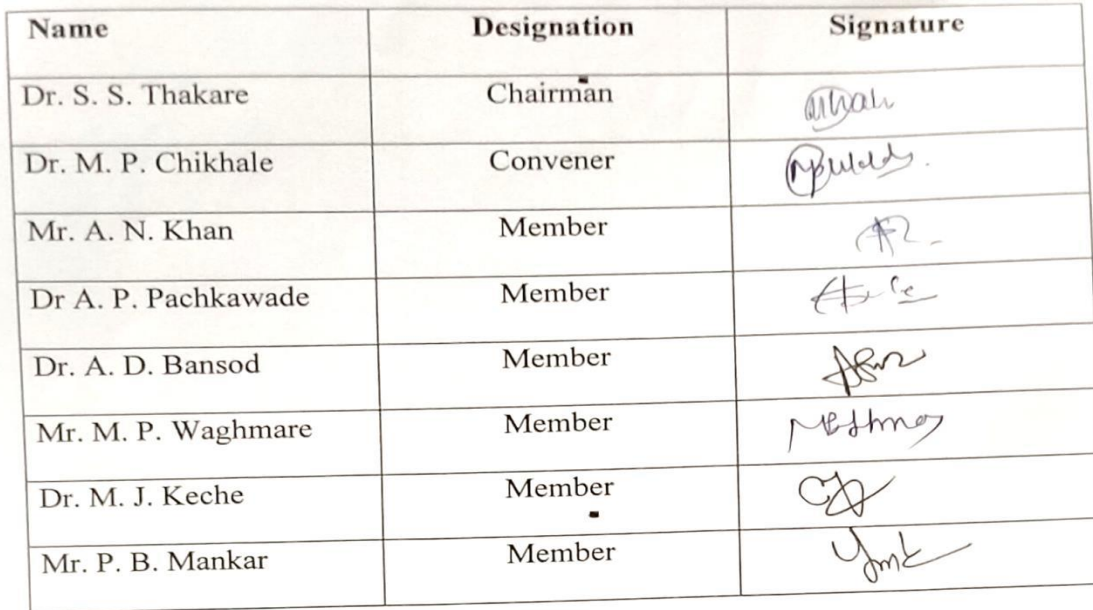 Name Designation Signature
Dr. S. S. Thakare Chairman
Dr. M. P. Chikhale Convener
Mr. A. N. Khan Member
Dr A. P. Pachkawade Member
Dr. A. D. Bansod Member
Mr. M. P. Waghmare Member
Dr. M. J. Keche Member
Mr. P. B. Mankar Member